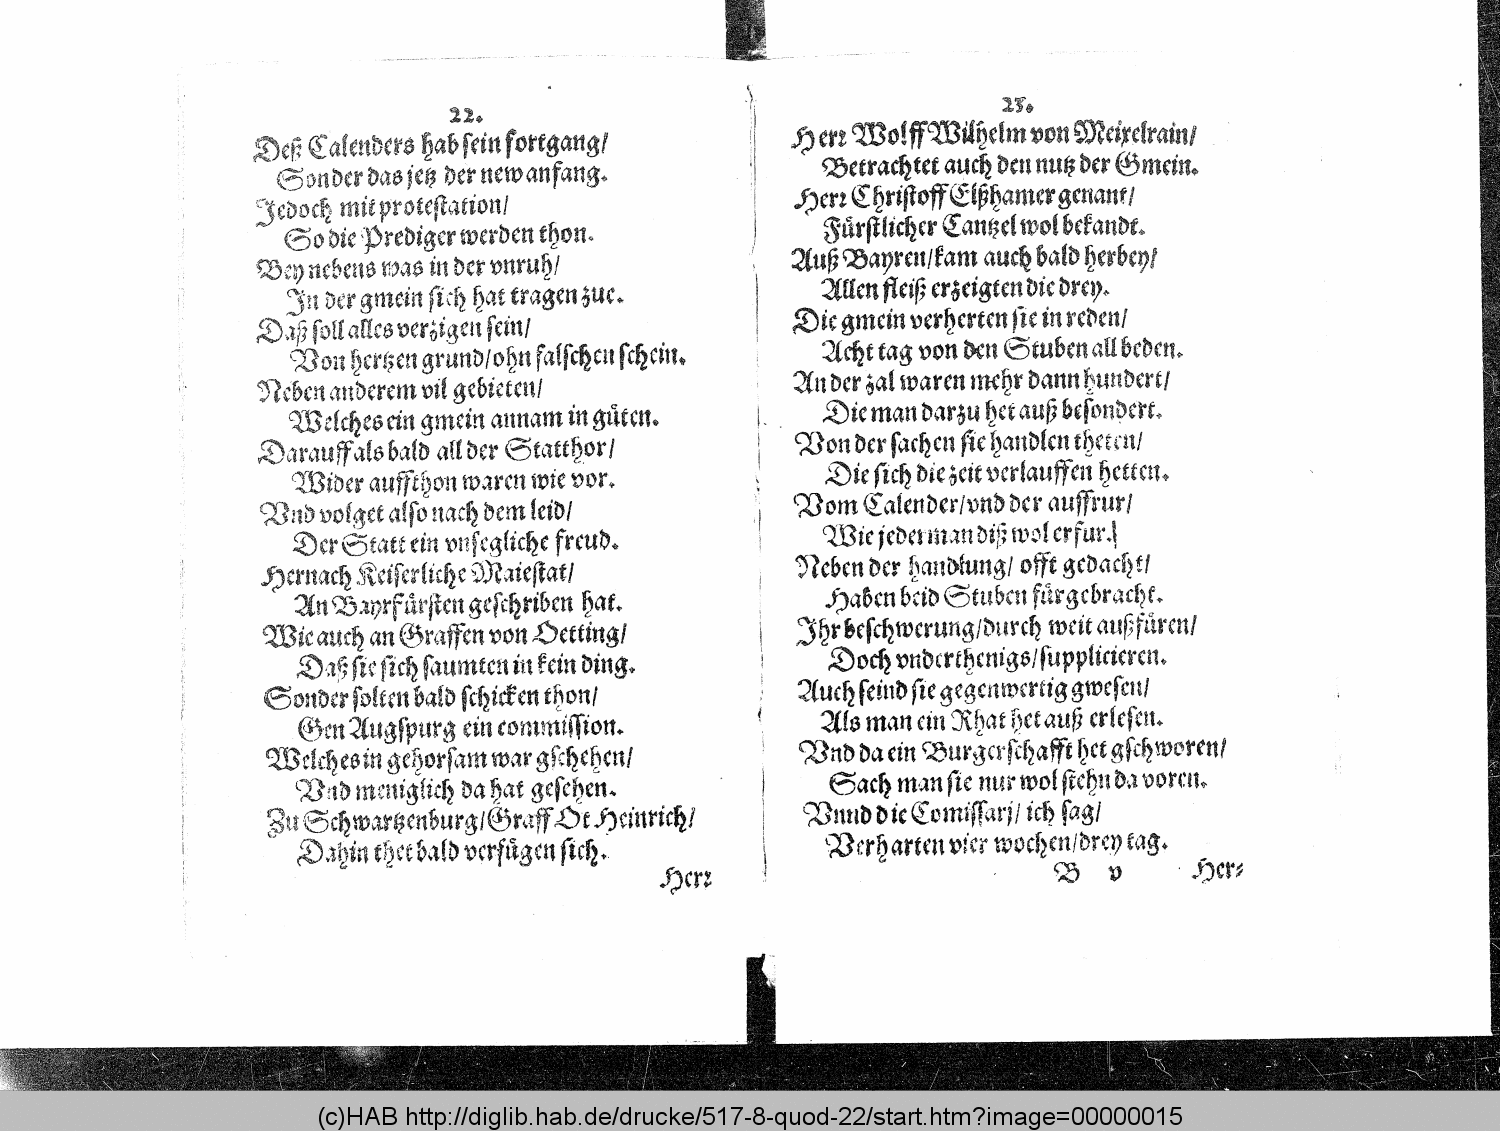 22.
Deß Calenders hab sein fortgang/
Sonder das jetz der new anfang.
Jedoch mit protestation/
So die Prediger werden thon.
Bey nebens was in der vnruh/
In der gmein sich hat tragen zue.
Daß soll alles verzigen sein/
Von hertzen grund/ohn falschen schein.
Neben anderem vil gebieten/
Welches ein gmein annam in gůten.
Darauff als bald all der Statthor/
Wider auffthon waren wie vor.
Vnd volget also nach dem leid/
Der Statt ein vnsegliche freud.
Hernach Keiserliche Maiestat/
An Bayrfürsten geschriben hat.
Wie auch an Graffen von Oetting/
Daß sie sich saumten in kein ding.
Sonder solten bald schicken thon/
Gen Augspurg ein commission.
Welches in gehorsam war gschehen/
Vnd meniglich da hat gesehen.
Zu Schwartzenburg/Graff Ot Heinrich/
Dahin thet bald verfügen sich.
Herr
25.
Herr Wolff Wilhelm von Meixelrain/
Betrachtet auch den nutz der Gmein.
Herr Christoff Elßhamer genant/
Fürstlicher Cantzel wol bekandt.
Auß Bayren/kam auch bald herbey/
Allen fleiß erzeigten die drey.
Die gmein verherten sie in reden/
Acht tag von den Stuben all beden.
An der zal waren mehr dann hundert/
Die man darzu het auß besondert.
Von der sachen sie handlen theten/
Die sich die zeit verlauffen hetten.
Vom Calender/vnd der auffrur/
Wie jederman diß wol erfur.
Neben der handlung/ offt gedacht/
Haben beid Stuben fürgebracht.
Ihr beschwerung/durch weit außfüren/
Doch vnderthenigs/supplicieren.
Auch seind sie gegenwertig gwesen/
Als man ein Rhat het auß erlesen.
Vnd da ein Burgerschafft het gschworen/
Sach man sie nur wol stehn da voren.
Vnnd die Comissarj/ ich sag/
Verharten vier wochen/drey tag.
B v Her⸗
(c)HAB http://diglib.hab.de/drucke/517-8-quod-22/start.htm?image=00000015